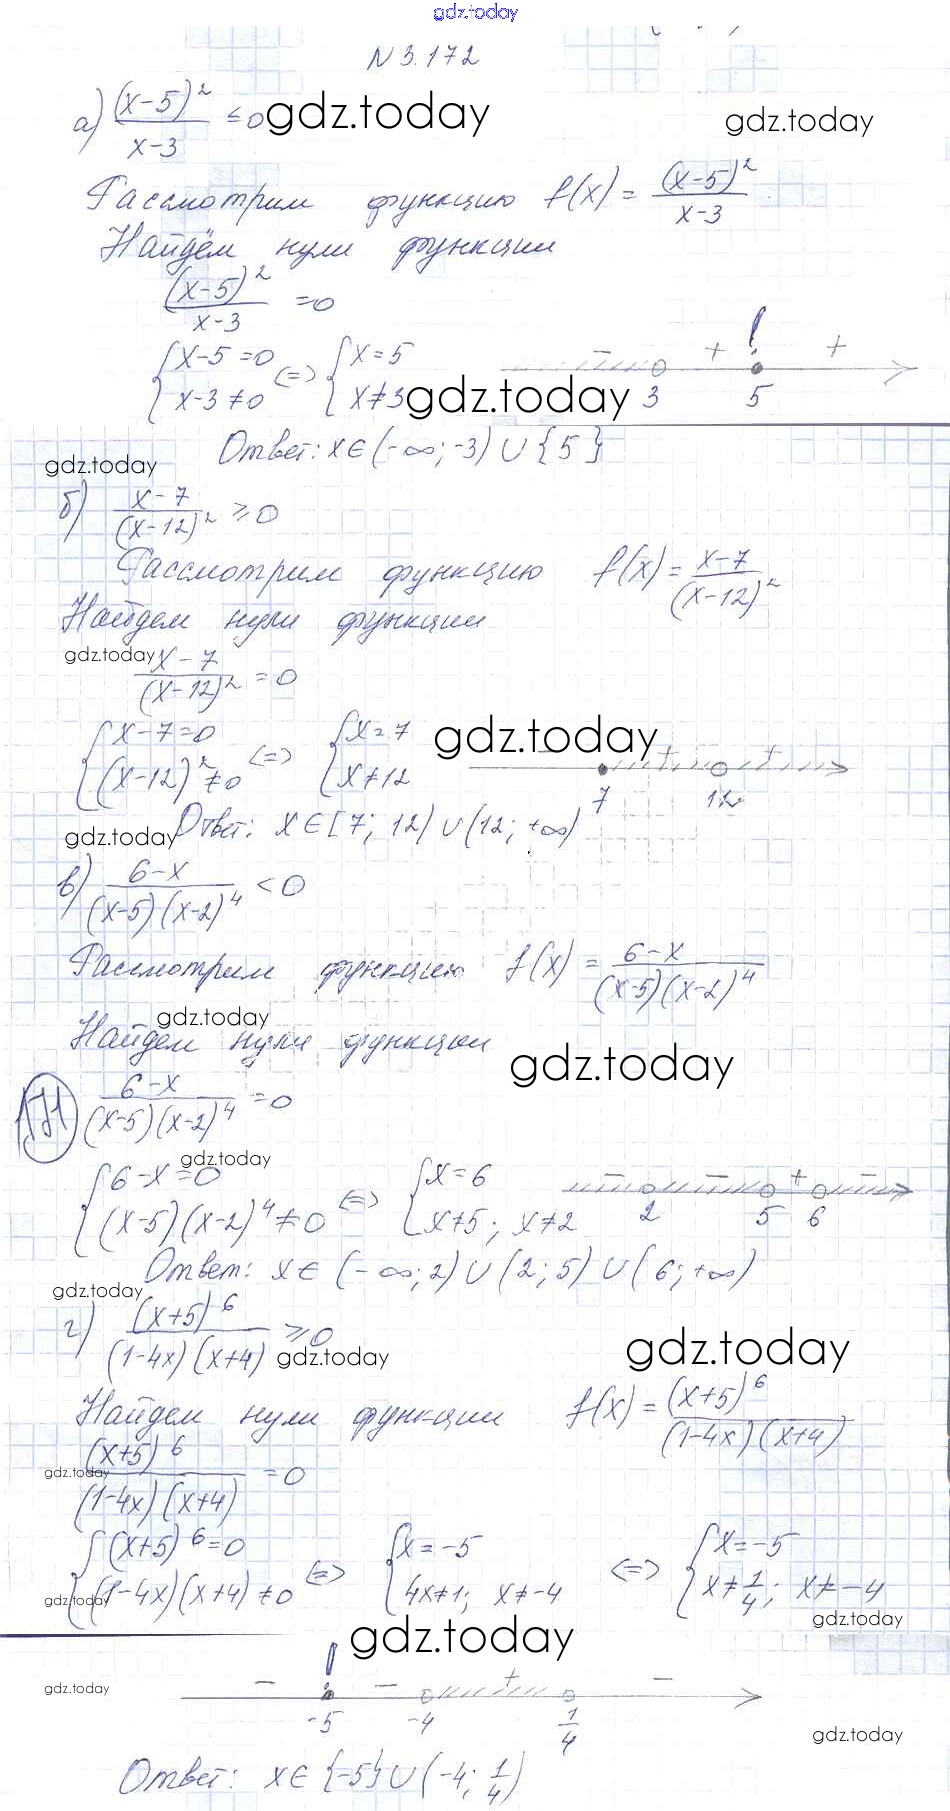 gdz.today
N 3.172
а) (x-5)²/(x-3) ≤ 0 gdz.today gdz.today
Рассмотрим функцию f(x) = (x-5)²/(x-3)
Найдём нули функции
(x-5)²/(x-3) = 0
{x-5=0 {x=5 - + ! +
{x-3≠0 <=> {x≠3 gdz.today 3 5
Ответ: x∈(-∞; -3) ∪ {5}
gdz.today
б) (x-7)/(x-12)² ≥ 0
Рассмотрим функцию f(x) = (x-7)/(x-12)²
Найдем нули функции
gdz.today
(x-7)/(x-12)² = 0
{x-7=0 {x=7 gdz.today + +
{(x-12)²≠0 <=> {x≠12 7 12
gdz.today Ответ: x∈[7; 12) ∪ (12; +∞)
в) (6-x)/((x-5)(x-2)⁴) < 0
Рассмотрим функцию f(x) = (6-x)/((x-5)(x-2)⁴)
gdz.today
Найдем нули функции
gdz.today
171 (6-x)/((x-5)(x-2)⁴) = 0
gdz.today
{6-x=0 {x=6 - - + -
{(x-5)(x-2)⁴≠0 <=> {x≠5; x≠2 2 5 6
Ответ: x∈(-∞; 2) ∪ (2; 5) ∪ (6; +∞)
gdz.today
г) (x+5)⁶/((1-4x)(x+4)) ≥ 0 gdz.today gdz.today
Найдем нули функции f(x) = (x+5)⁶/((1-4x)(x+4))
gdz.today
(x+5)⁶/((1-4x)(x+4)) = 0
{(x+5)⁶=0 {x=-5 {x=-5
{(1-4x)(x+4)≠0 <=> {4x≠1; x≠-4 <=> {x≠1/4; x≠-4
gdz.today gdz.today
gdz.today
gdz.today - ! - + -
-5 -4 1/4
gdz.today
Ответ: x∈{-5} ∪ (-4; 1/4)